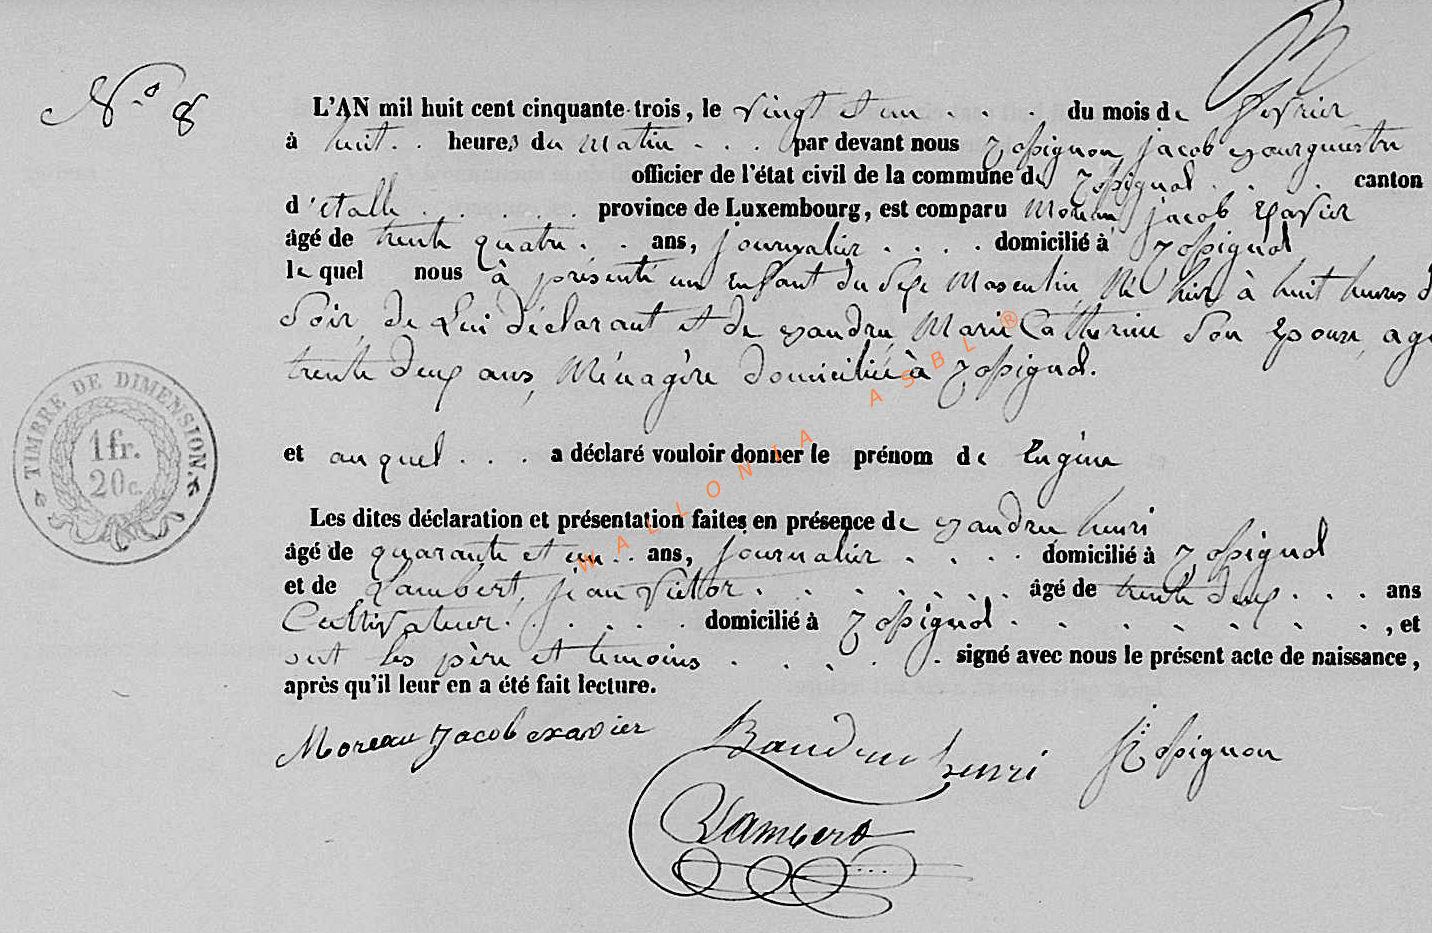 N.o 8
L'AN mil huit cent cinquante-trois, le vingt et un . . . . du mois de fevrier
à huit . . heures du matin . . . par devant nous Rossignon, jacob Bourguestre
officier de l'état civil de la commune de Rossignol . . . . canton
d'etalle . . . . . . province de Luxembourg, est comparu Moreau jacob Xavier
âgé de trente quatre . . ans, journalier . . . . domicilié à Rossignol
le quel nous à présenté un enfant du sexe Masculin, Né hier à huit heures d
Soir, de Lui déclarant et de Baudru Marie Catherine son Epouse, agé
trente deux ans, Ménagère domiciliée à Rossignol.
et auquel . . . a déclaré vouloir donner le prénom de Eugène
Les dites déclaration et présentation faites en présence de Baudru henri
âgé de quarante et un . . ans, journalier . . . . domicilié à Rossignol
et de Lambert, jean Victor . . . . . . . . âgé de trente deux . . . ans
Cultivateur . . . . . . domicilié à Rossignol . . . . . . . . , et
ont les père et temoins . . . . . . signé avec nous le présent acte de naissance,
après qu'il leur en a été fait lecture.
TIMBRE DE DIMENSION
1 fr.
20 c.
Moreau Jacob exavier
Baudru henri
Rossignon
Lambert
WALLONIA ASBL ®